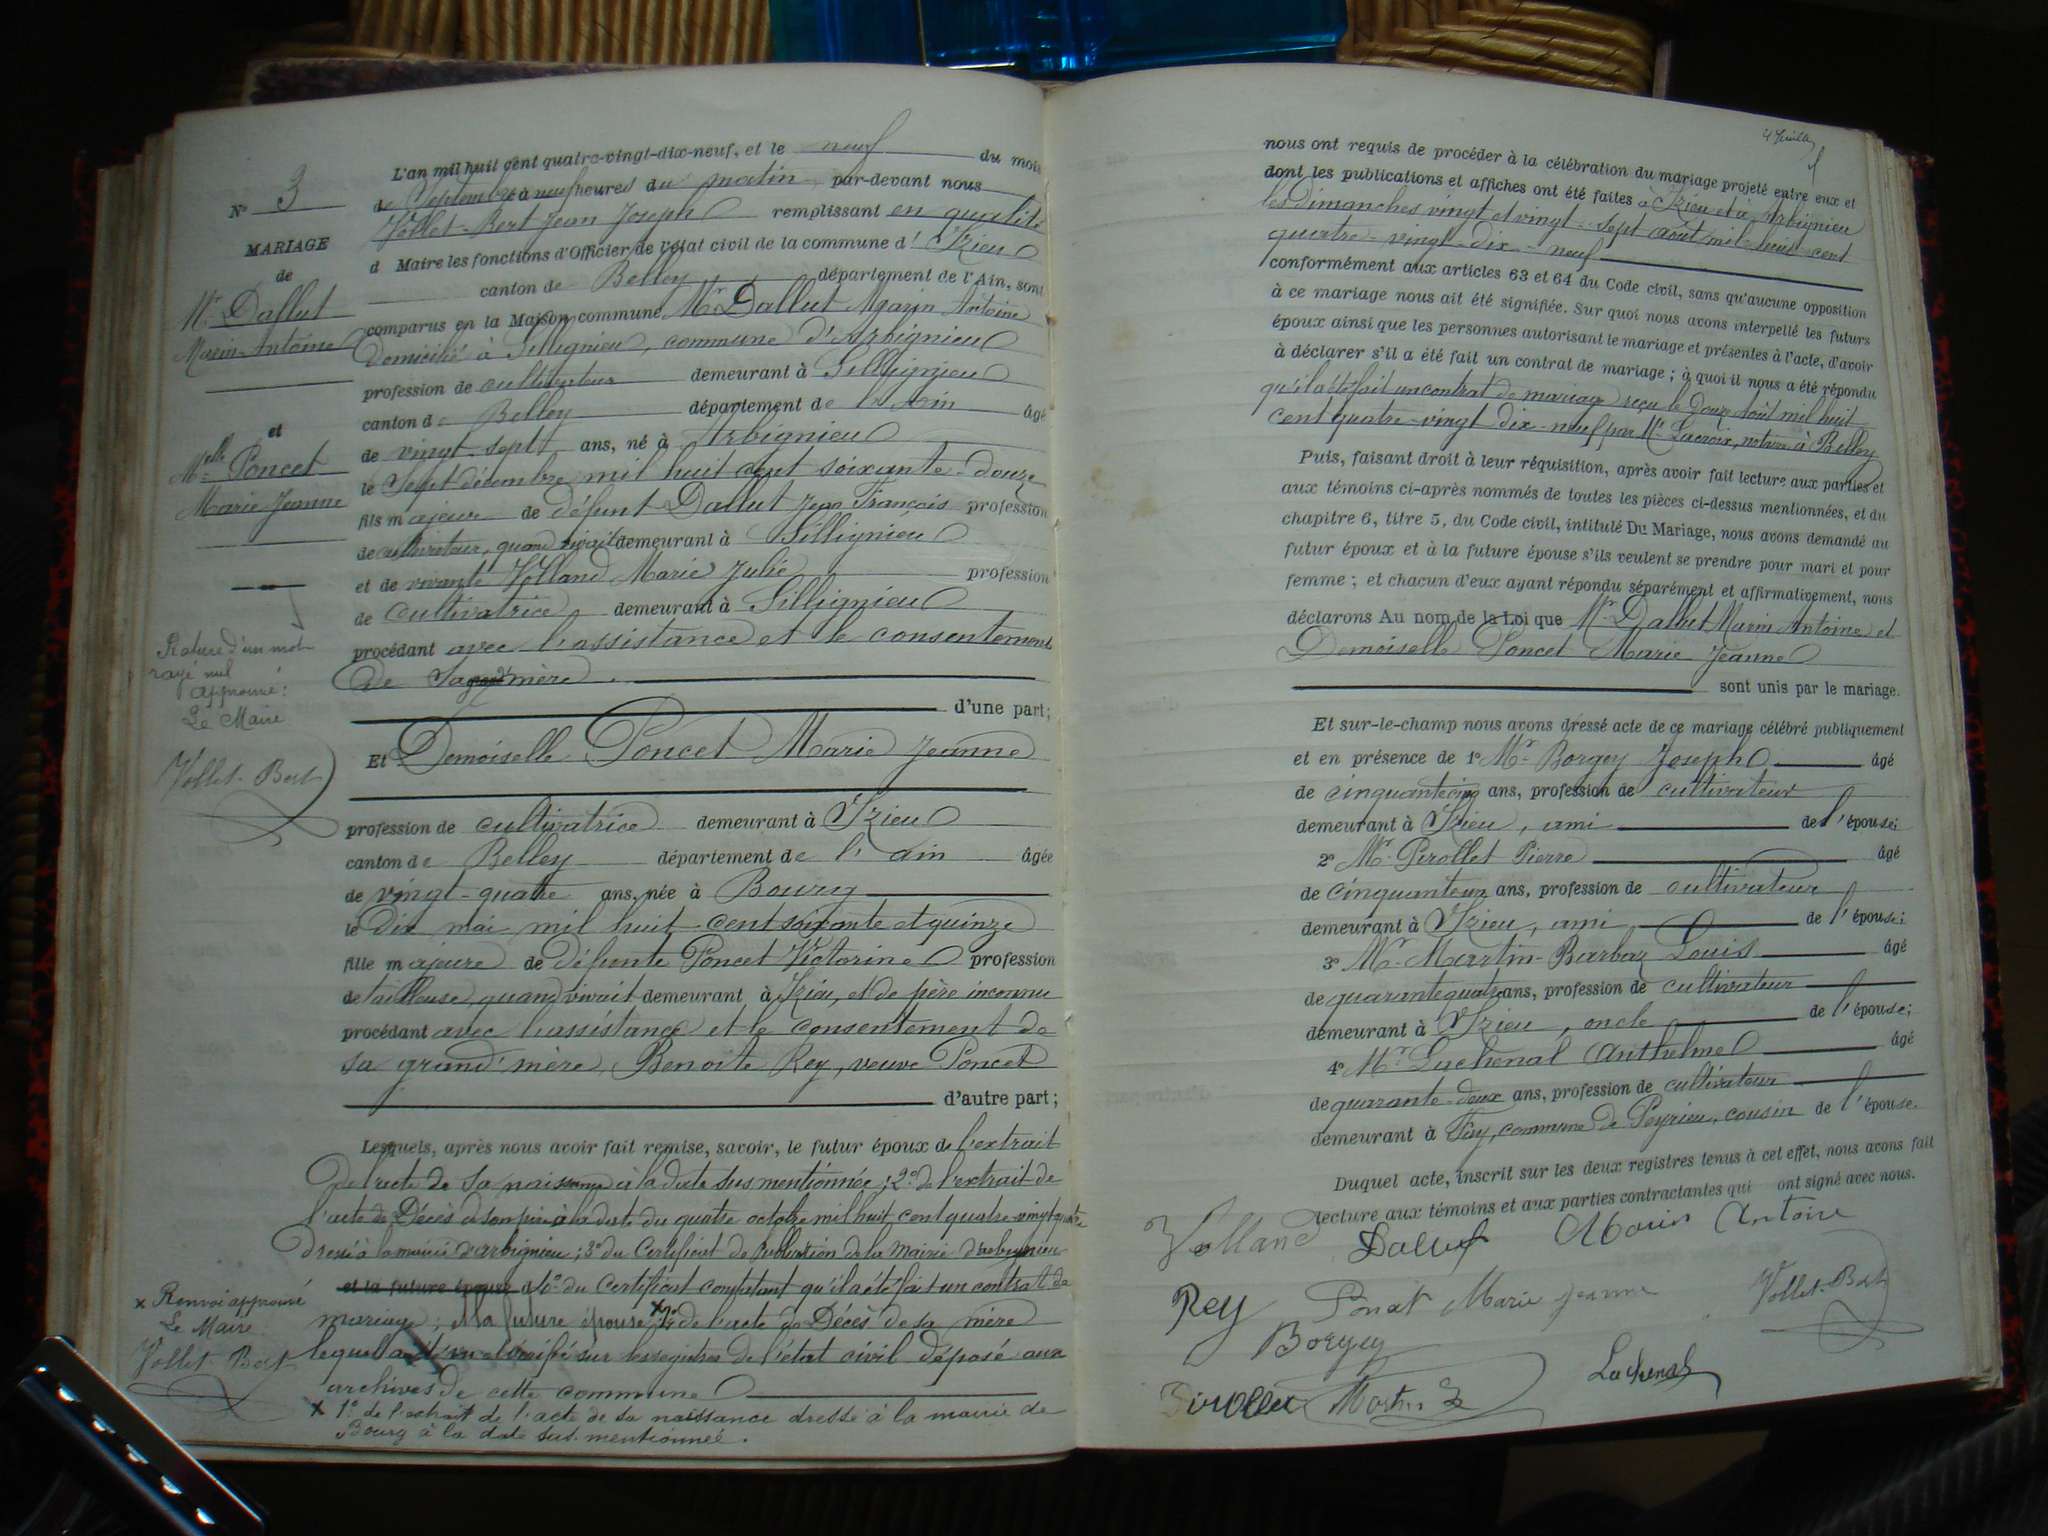 N° 3
MARIAGE
de
Mr Dallut
Marin-Antoine
et
Melle Poncet
Marie Jeanne
Rature d'un mot
rayé nul
approuvé :
Le Maire
Vollet-Bert
x Renvoi approuvé
Le Maire
Vollet-Bert
L'an mil huit cent quatre-vingt-dix-neuf, et le neuf du mois
de Septembre à neuf heures du matin par-devant nous
Vollet-Bert Jean Joseph remplissant en qualité
d Maire les fonctions d'Officier de l'état civil de la commune d'Izieu
canton de Belley département de l'Ain, sont
comparus en la Maison commune Mr Dallut Marin Antoine
domicilié à Sillignieu, commune d'Arbignieu
profession de cultivateur demeurant à Sillignieu
canton de Belley département de l'Ain âgé
de vingt-sept ans, né à Arbignieu
le Sept décembre mil huit cent soixante-douze
fils majeur de défunt Dallut Jean François profession
de cultivateur, quand vivait demeurant à Sillignieu
et de vivante Volland Marie Julie profession
de cultivatrice demeurant à Sillignieu
procédant avec l'assistance et le consentement
de sa mère.
d'une part;
Et Demoiselle Poncet Marie Jeanne
profession de cultivatrice demeurant à Izieu
canton de Belley département de l'Ain âgée
de vingt-quatre ans, née à Bourg
le Dix mai mil huit-cent soixante et quinze
fille majeure de défunte Poncet Victorine profession
de tailleuse, quand vivait demeurant à Izieu, et de père inconnu
procédant avec l'assistance et le consentement de
sa grand'mère, Benoite Rey, veuve Poncet
d'autre part;
Lesquels, après nous avoir fait remise, savoir, le futur époux de l'extrait
de l'acte de sa naissance à la date sus mentionnée; 2° de l'extrait de
l'acte de Décès de son père à la date du quatre octobre mil huit cent quatre-vingt-quatre
dressé à la mairie d'Arbignieu; 3° du Certificat de Publication de la Mairie d'Arbignieu
et la future épouse 4° du Certificat constatant qu'il a été fait un contrat de
mariage; et la future épouse x 2° de l'acte de Décès de sa mère
lequel a été vérifié sur les registres de l'état civil déposé aux
archives de cette commune
x 1° de l'extrait de l'acte de sa naissance dressé à la mairie de
Bourg à la date sus-mentionnée.
nous ont requis de procéder à la célébration du mariage projeté entre eux et
dont les publications et affiches ont été faites à Izieu et à Arbignieu
les Dimanches vingt et vingt-sept août mil-huit-cent
quatre-vingt-dix-neuf
conformément aux articles 63 et 64 du Code civil, sans qu'aucune opposition
à ce mariage nous ait été signifiée. Sur quoi nous avons interpellé les futurs
époux ainsi que les personnes autorisant le mariage et présentes à l'acte, d'avoir
à déclarer s'il a été fait un contrat de mariage; à quoi il nous a été répondu
qu'il a été fait un contrat de mariage reçu le douze août mil huit
cent quatre-vingt dix-neuf par Me Lacroix, notaire à Belley
Puis, faisant droit à leur réquisition, après avoir fait lecture aux parties et
aux témoins ci-après nommés de toutes les pièces ci-dessus mentionnées, et du
chapitre 6, titre 5, du Code civil, intitulé Du Mariage, nous avons demandé au
futur époux et à la future épouse s'ils veulent se prendre pour mari et pour
femme; et chacun d'eux ayant répondu séparément et affirmativement, nous
déclarons Au nom de la Loi que Mr Dallut Marin Antoine et
Demoiselle Poncet Marie Jeanne
sont unis par le mariage.
Et sur-le-champ nous avons dressé acte de ce mariage célébré publiquement
et en présence de 1° Mr Borgey Joseph âgé
de cinquante cinq ans, profession de cultivateur
demeurant à Izieu, ami de l'épouse;
2° Mr Pirollet Pierre âgé
de cinquante un ans, profession de cultivateur
demeurant à Izieu, ami de l'épouse;
3° Mr Martin-Barbaz Louis âgé
de quarante quatre ans, profession de cultivateur
demeurant à Izieu, oncle de l'épouse;
4° Mr Luchenal Anthelme âgé
de quarante-deux ans, profession de cultivateur
demeurant à Fay, commune de Peyrieu, cousin de l'épouse.
Duquel acte, inscrit sur les deux registres tenus à cet effet, nous avons fait
lecture aux témoins et aux parties contractantes qui ont signé avec nous.
Volland Dallut Marin Antoine
Rey Poncet Marie Jeanne Vollet-Bert
Borgey
Pirollet Martin Luchenal